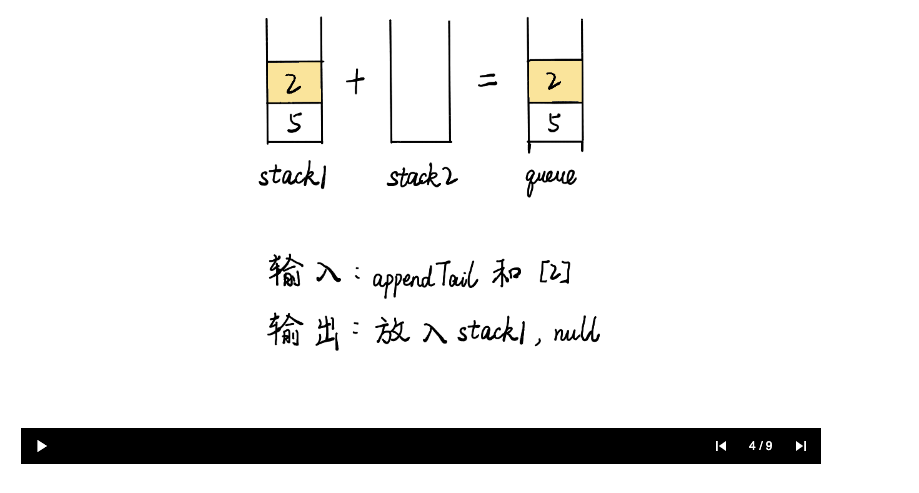 2 + = 2
5 5
stack1 stack2 queue
输入：appendTail 和 [2]
输出：放入 stack1, null
4 / 9